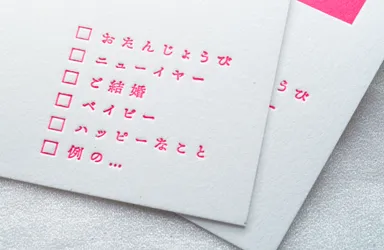 □ おたんじょうび
□ ニューイヤー
□ ど結婚
□ ベイビー
□ ハッピーなこと
□ 例の…
ょうび